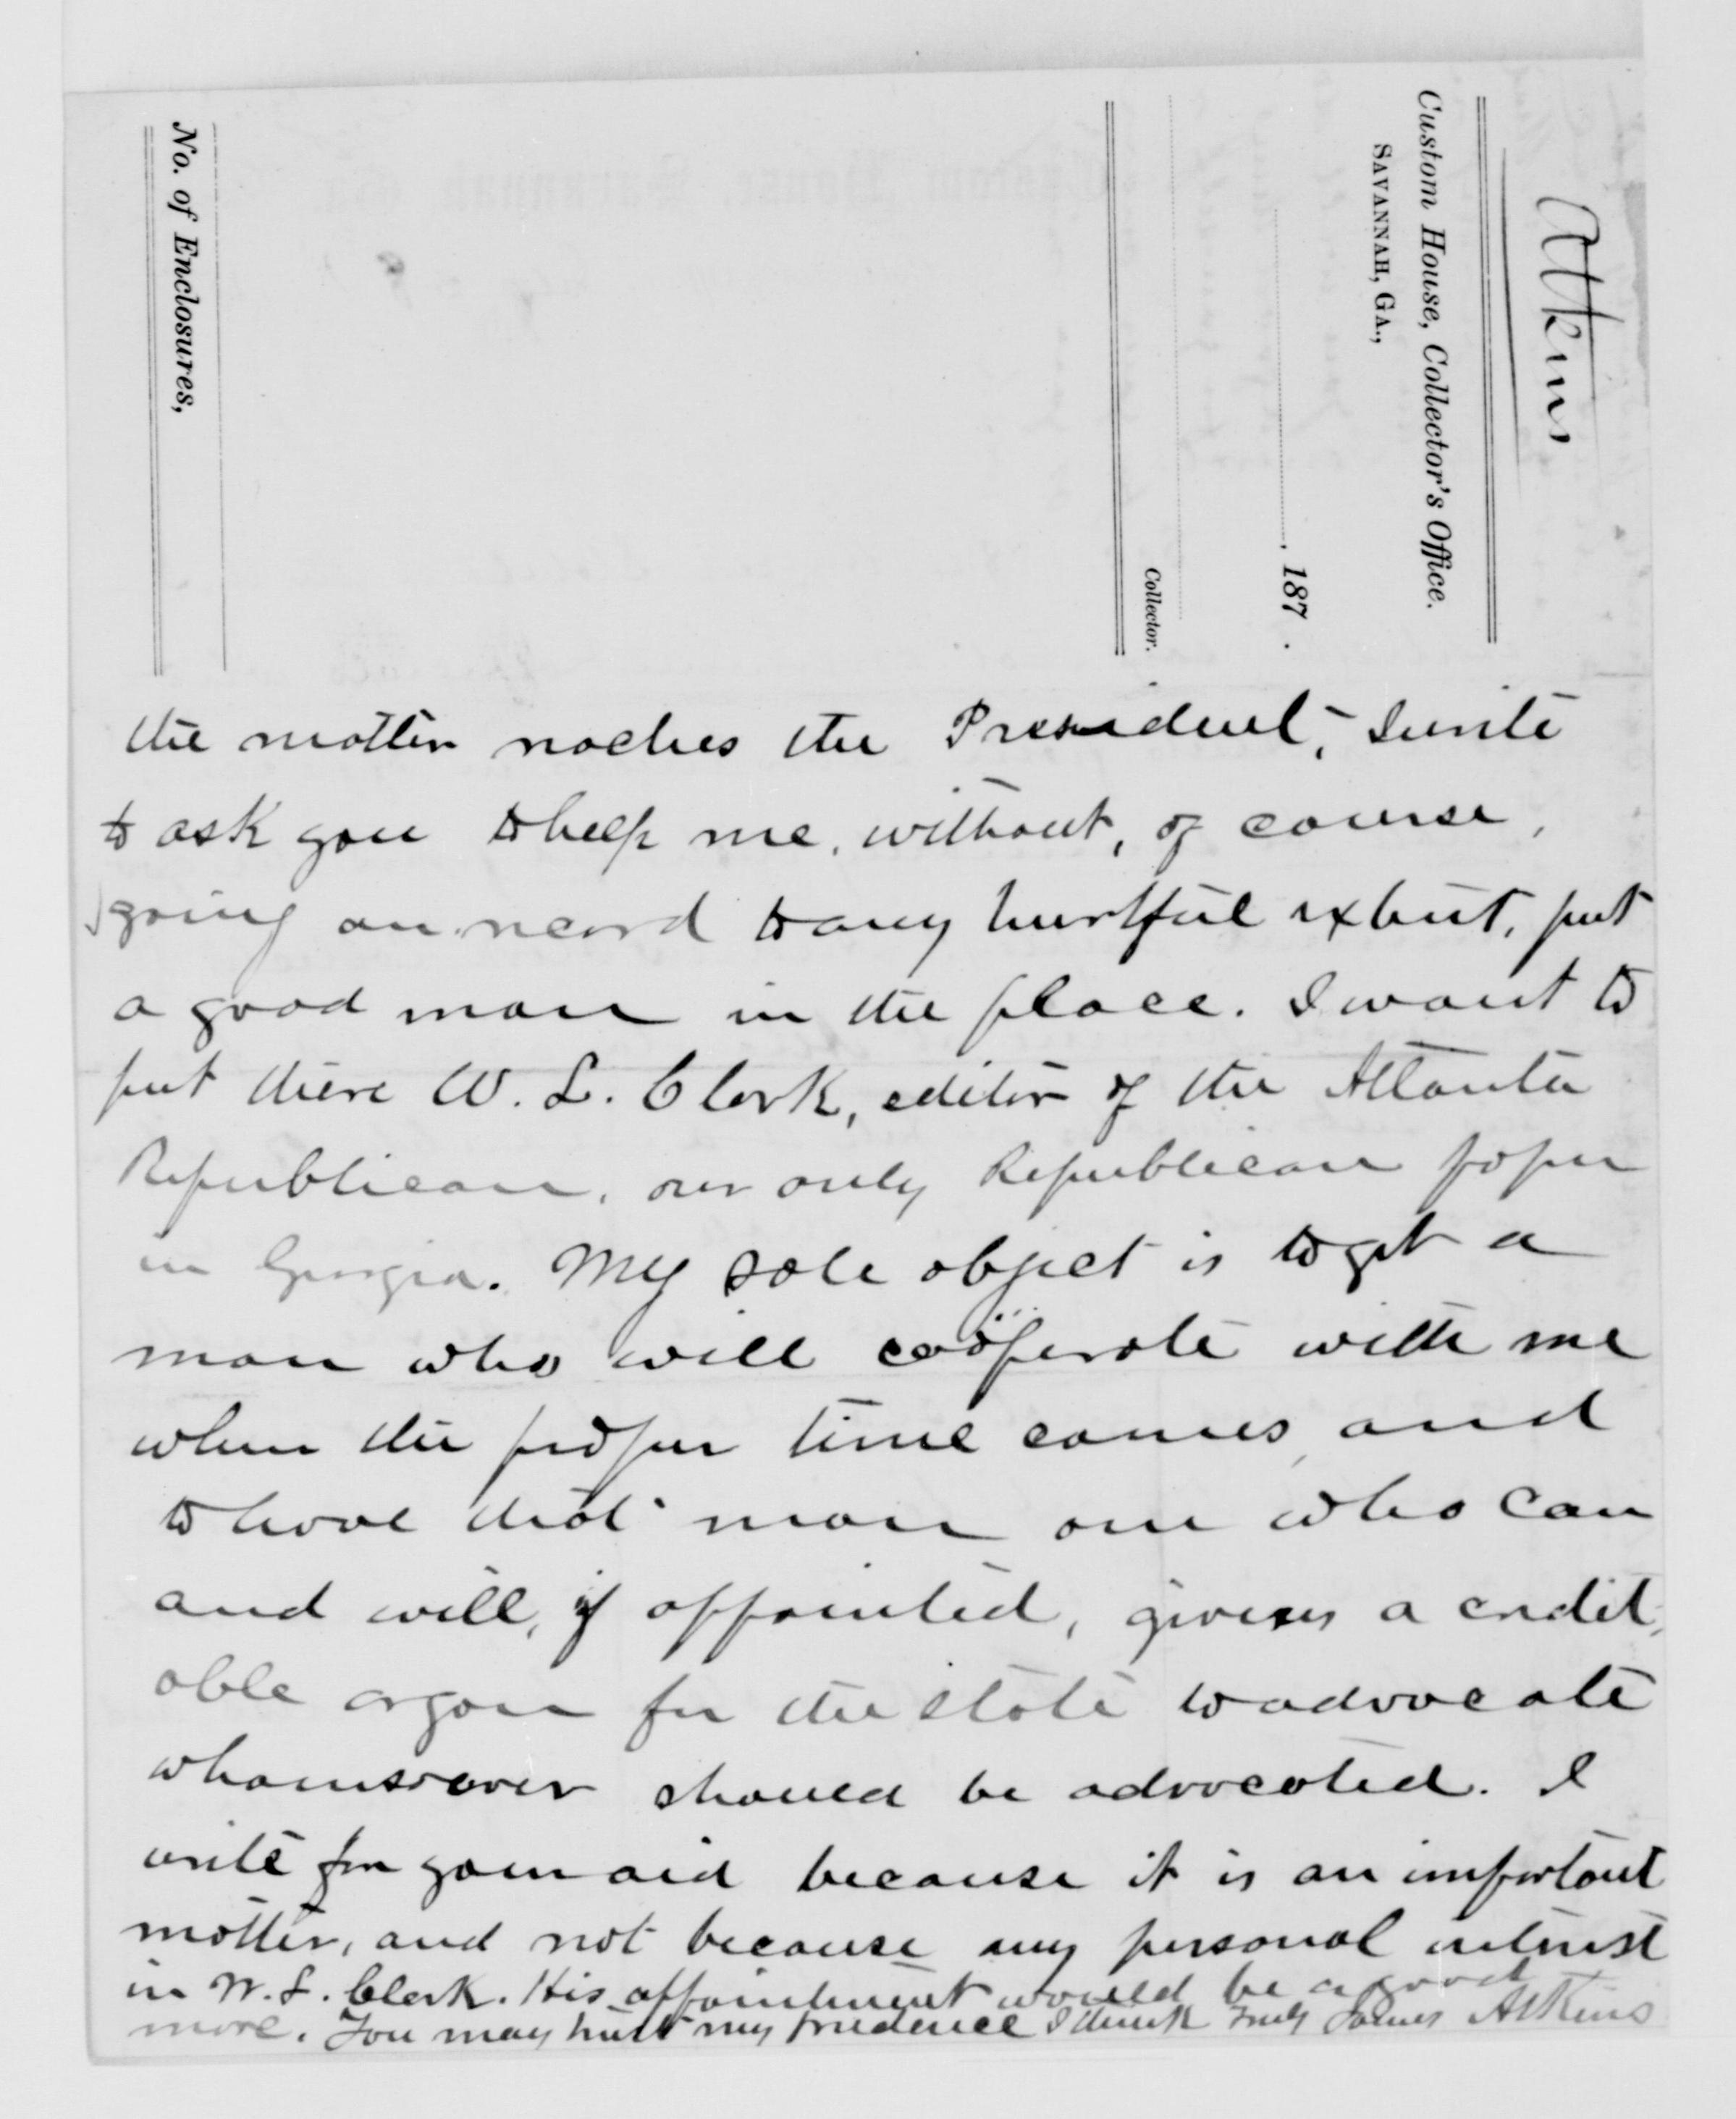 Atkins
Custom House, Collector's Office.
SAVANNAH, GA.,
. 187 .
Collector.
No. of Enclosures,
the matter reaches the President,- I write
to ask you to help me, without, of course,
going on record to any hurtful extent, put
a good man in the place. I want to
put there W. L. Clark, editor of the Atlanta
Republican, our only Republican paper
in Georgia. My sole object is to get a
man who will coöperate with me
when the proper time comes, and
to have that man one who can
and will, if appointed, give us a credit-
able organ for the state to advocate
whomsoever should be advocated. I
write for your aid because it is an important
matter, and not because any personal interest
in W. L. Clark. His appointment would be a good
move. You may trust my prudence I think Truly James Atkins